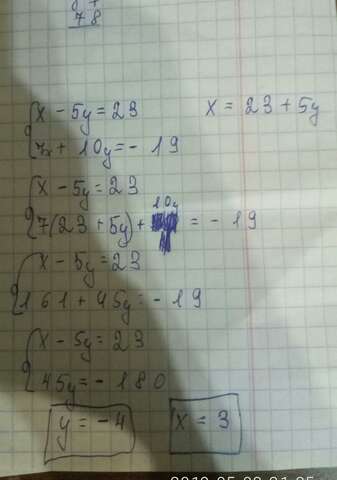 78
x - 5y = 23 x = 23 + 5y
7x + 10y = - 19
x - 5y = 23
7(23 + 5y) + 10y = - 19
x - 5y = 23
161 + 45y = - 19
x - 5y = 23
45y = - 180
y = - 4 x = 3